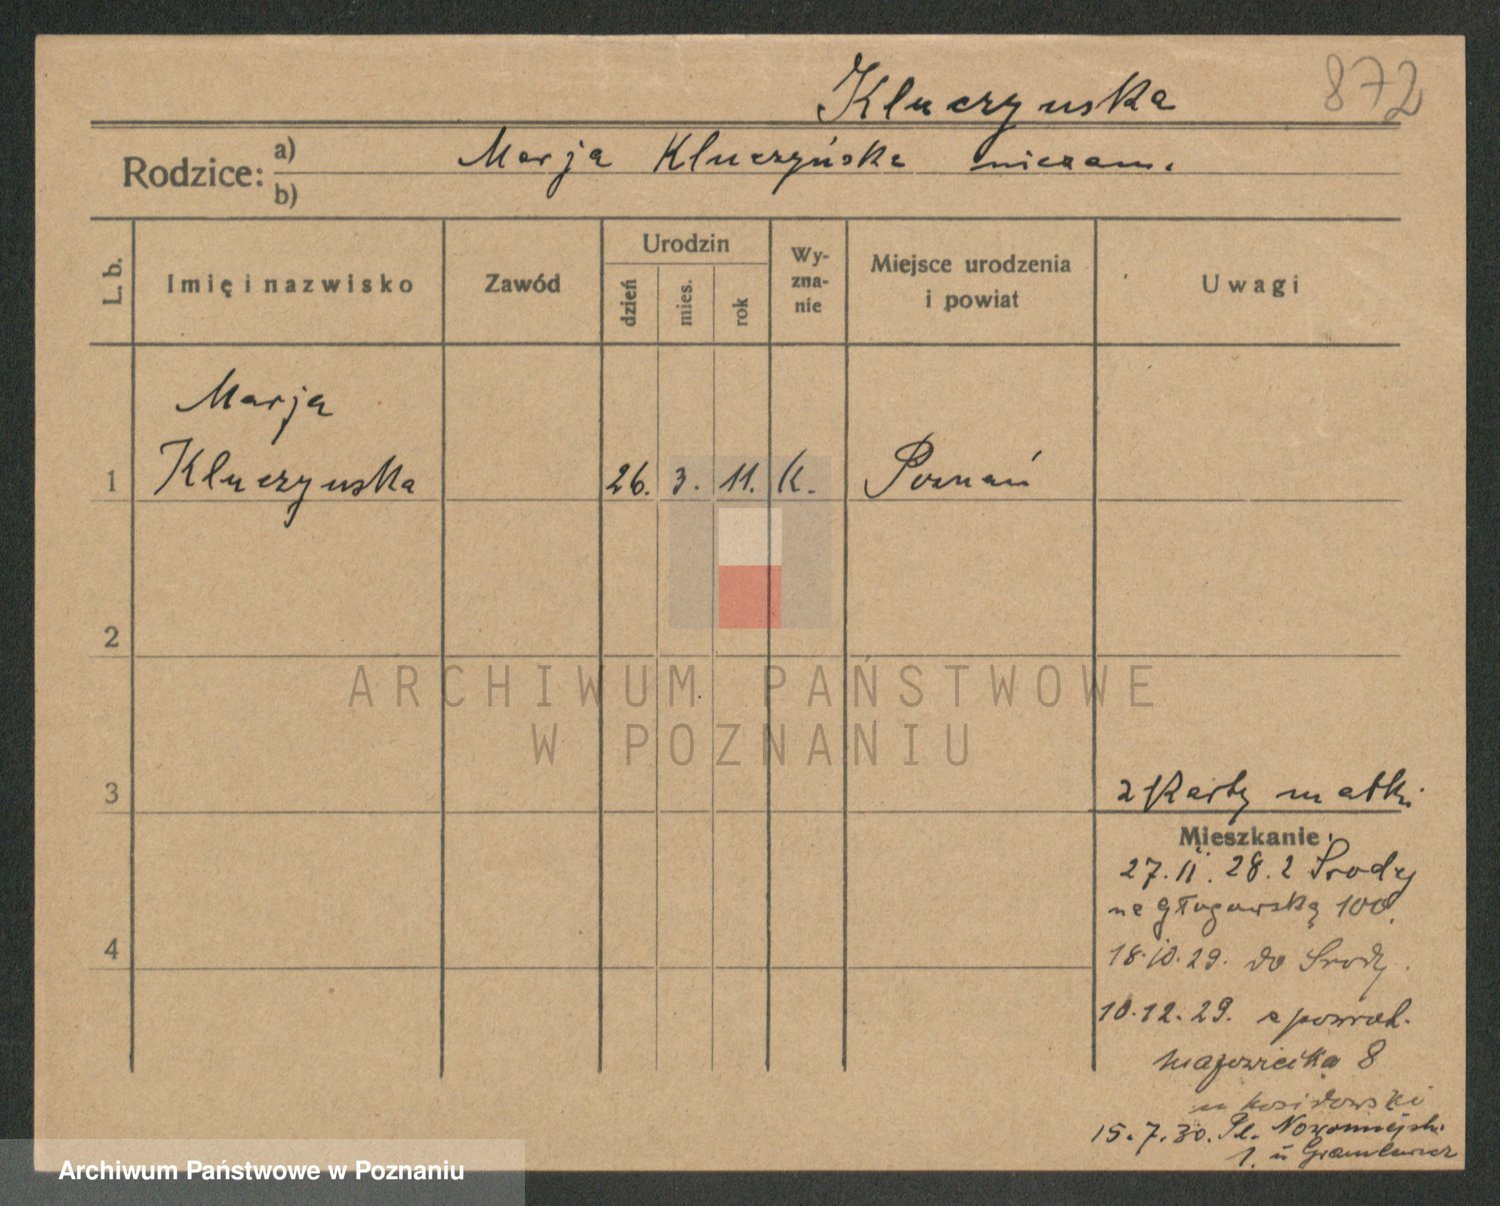 Kluczynska 872
Rodzice: a) Marja Kluczyńska niezam.
b)
L. b. Imię i nazwisko Zawód Urodzin dzień mies. rok Wy-zna-nie Miejsce urodzenia i powiat Uwagi
Marja
1 Kluczynska 26. 3. 11. K. Poznań
2
ARCHIWUM PAŃSTWOWE
W POZNANIU
3 z Karty matki
Mieszkanie
27. 11. 28. z Środy
na Głogowską 100.
4 18.10.29. do Środy.
10.12.29. z powrot.
Mazowiecka 8
u
15.7.30. Pl. Nowomiejski
1. u
Archiwum Państwowe w Poznaniu